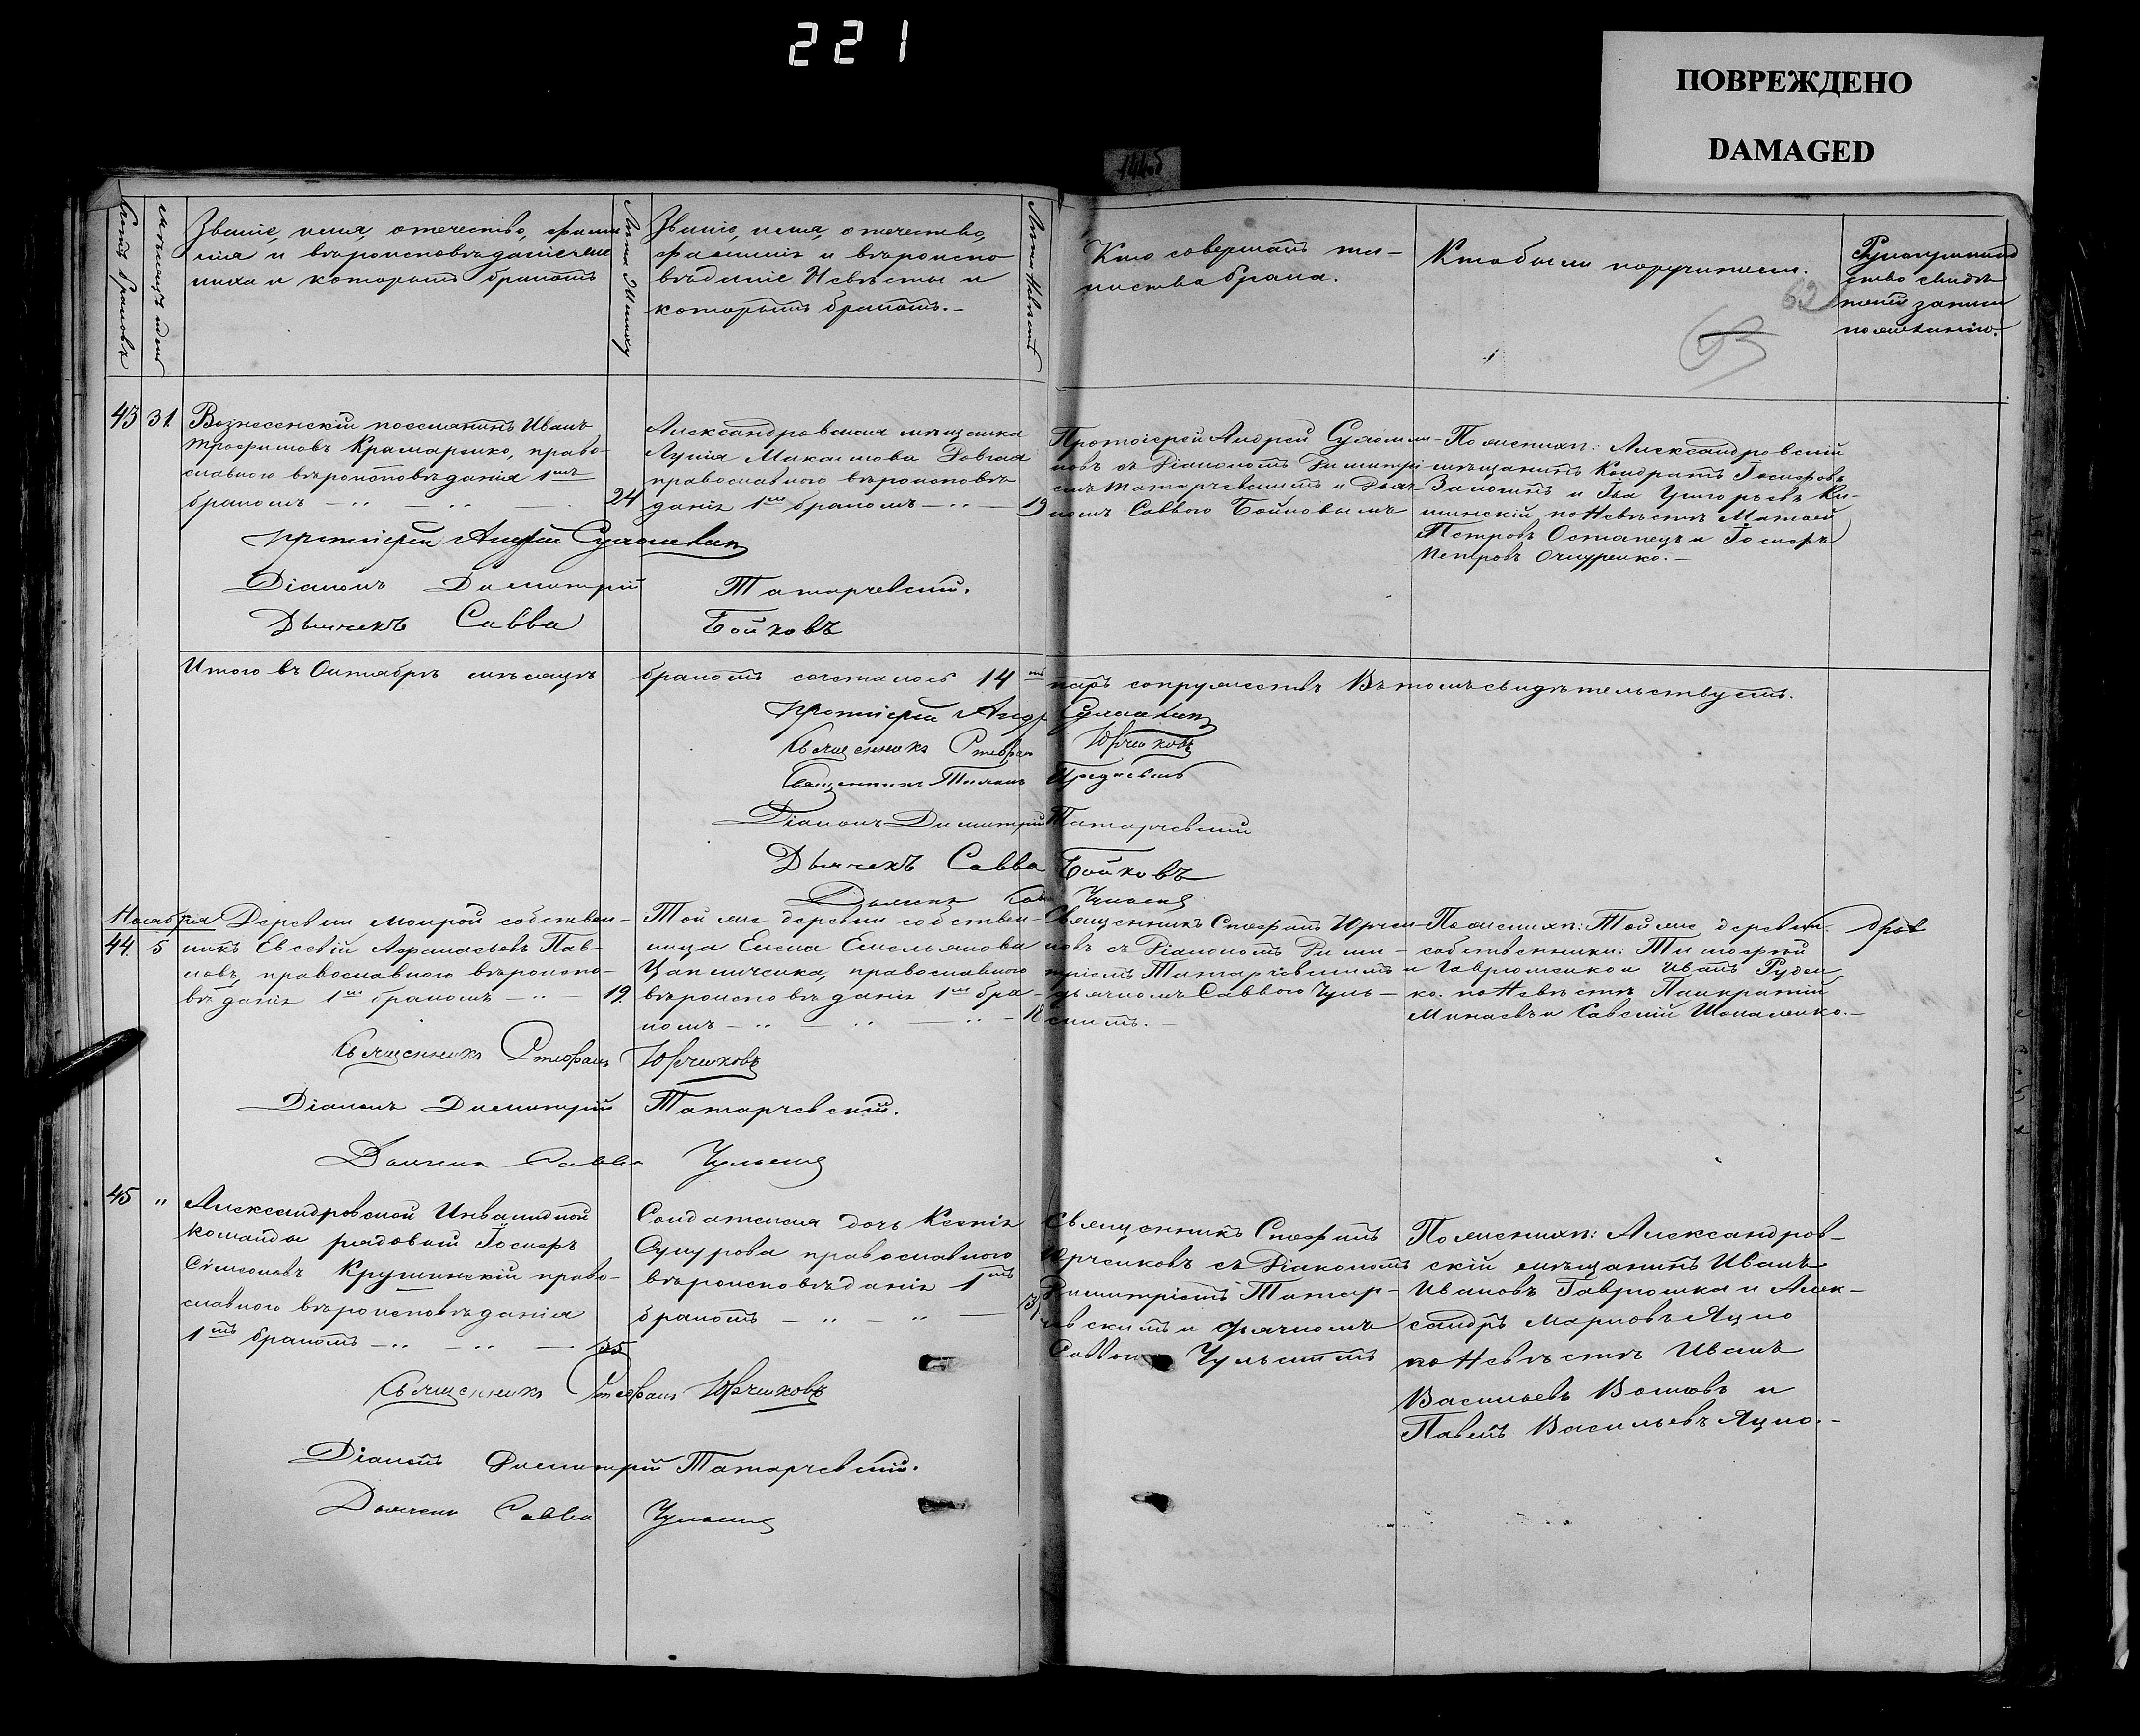 221
ПОВРЕЖДЕНО
DAMAGED
Счетъ браковъ
Мѣсяцъ и день
Званіе, имя, отечество, фами-
лія и вѣроисповѣданіе же-
ниха и которымъ бракомъ
Лѣта Жениху
Званіе, имя, отечество,
фамилія и вѣроиспо
вѣданіе Невѣсты и
которымъ бракомъ.–
Лѣта Невѣстѣ
Кто совершалъ та-
инство брака.
Кто были поручители.
ство свидѣ
телей записи
по желанію.
43
31
Вознесенскій поселянинъ Иванъ
Трофимовъ Крамаренко, право-
славнаго вѣроисповѣданія 1мъ
бракомъ
24
Александровская мѣщанка
православного вѣроисповѣ
данія 1мъ бракомъ
19
Протоіерей Андрей
новъ съ Діакономъ Димитрі
емъ Татарчевскимъ и Дьяч-
комъ Саввою Бойковымъ
По женихѣ: Александровскій
мѣщанинъ Кондратъ Іосифовъ
шинскій по Невѣстѣ Матвей
Петровъ Остапецъ и Іосифъ
Петровъ
протоіерей Андрей
Діаконъ Димитрій Татарчевскій.
Дьячекъ Савва Бойковъ
Итого въ Октябрѣ мѣсяцѣ бракомъ сочеталось 14ть паръ супружествъ Въ томъ свидѣтельствуемъ.
протоіерей Андр
Священникъ Стефан Юрчиковъ
Священникъ
Діаконъ Димитрій Татарчевскій
Дьячекъ Савва Бойковъ
Дьячекъ Савва
Ноября
44.
5
Деревни Мокрой собствен-
никъ Евсевій Афанасьевъ Пав-
ловъ, православнаго вѣроиспо-
вѣданія 1мъ бракомъ
19
Той же деревни собствен-
ница Елена Емельянова
православного
вѣроисповѣданія 1мъ бра-
комъ
18
Священникъ Стефанъ Юрчи-
ковъ съ Діакономъ Дими-
тріемъ Татарчевскимъ и
дьячкомъ Саввою Чуль-
скимъ.
По женихѣ: Той же деревни
собственники: Тимофей
Гаврюшенко и Иванъ Руден
ко. по Невѣстѣ Панкратій
Минаевъ и Савелій
Священникъ Стефанъ Юрчиковъ
Діаконъ Димитрій Татарчевскій.
Дьячекъ Савва
45
"
Александровской Инвалидной
команды рядовой Іосифъ
Симеоновъ Крушинскій право-
славного вѣроисповѣданія
1мъ бракомъ
35
Солдатская дочь Ксенія
православного
вѣроисповѣданія 1мъ
бракомъ
Священникъ Стефанъ
Юрчиковъ съ Діакономъ
Димитріемъ Татар-
чевскимъ и дьячкомъ
Саввою
По женихѣ: Александров-
скій мѣщанинъ Иванъ
Ивановъ Гаврюшка и Алек-
сандръ Марковъ Яцко
по Невѣстѣ Иванъ
Васильевъ Волковъ и
Павелъ Васильевъ Яцко.–
Священникъ Стефанъ Юрчиковъ
Діаконъ Димитрій Татарчевскій.
Дьячекъ Савва